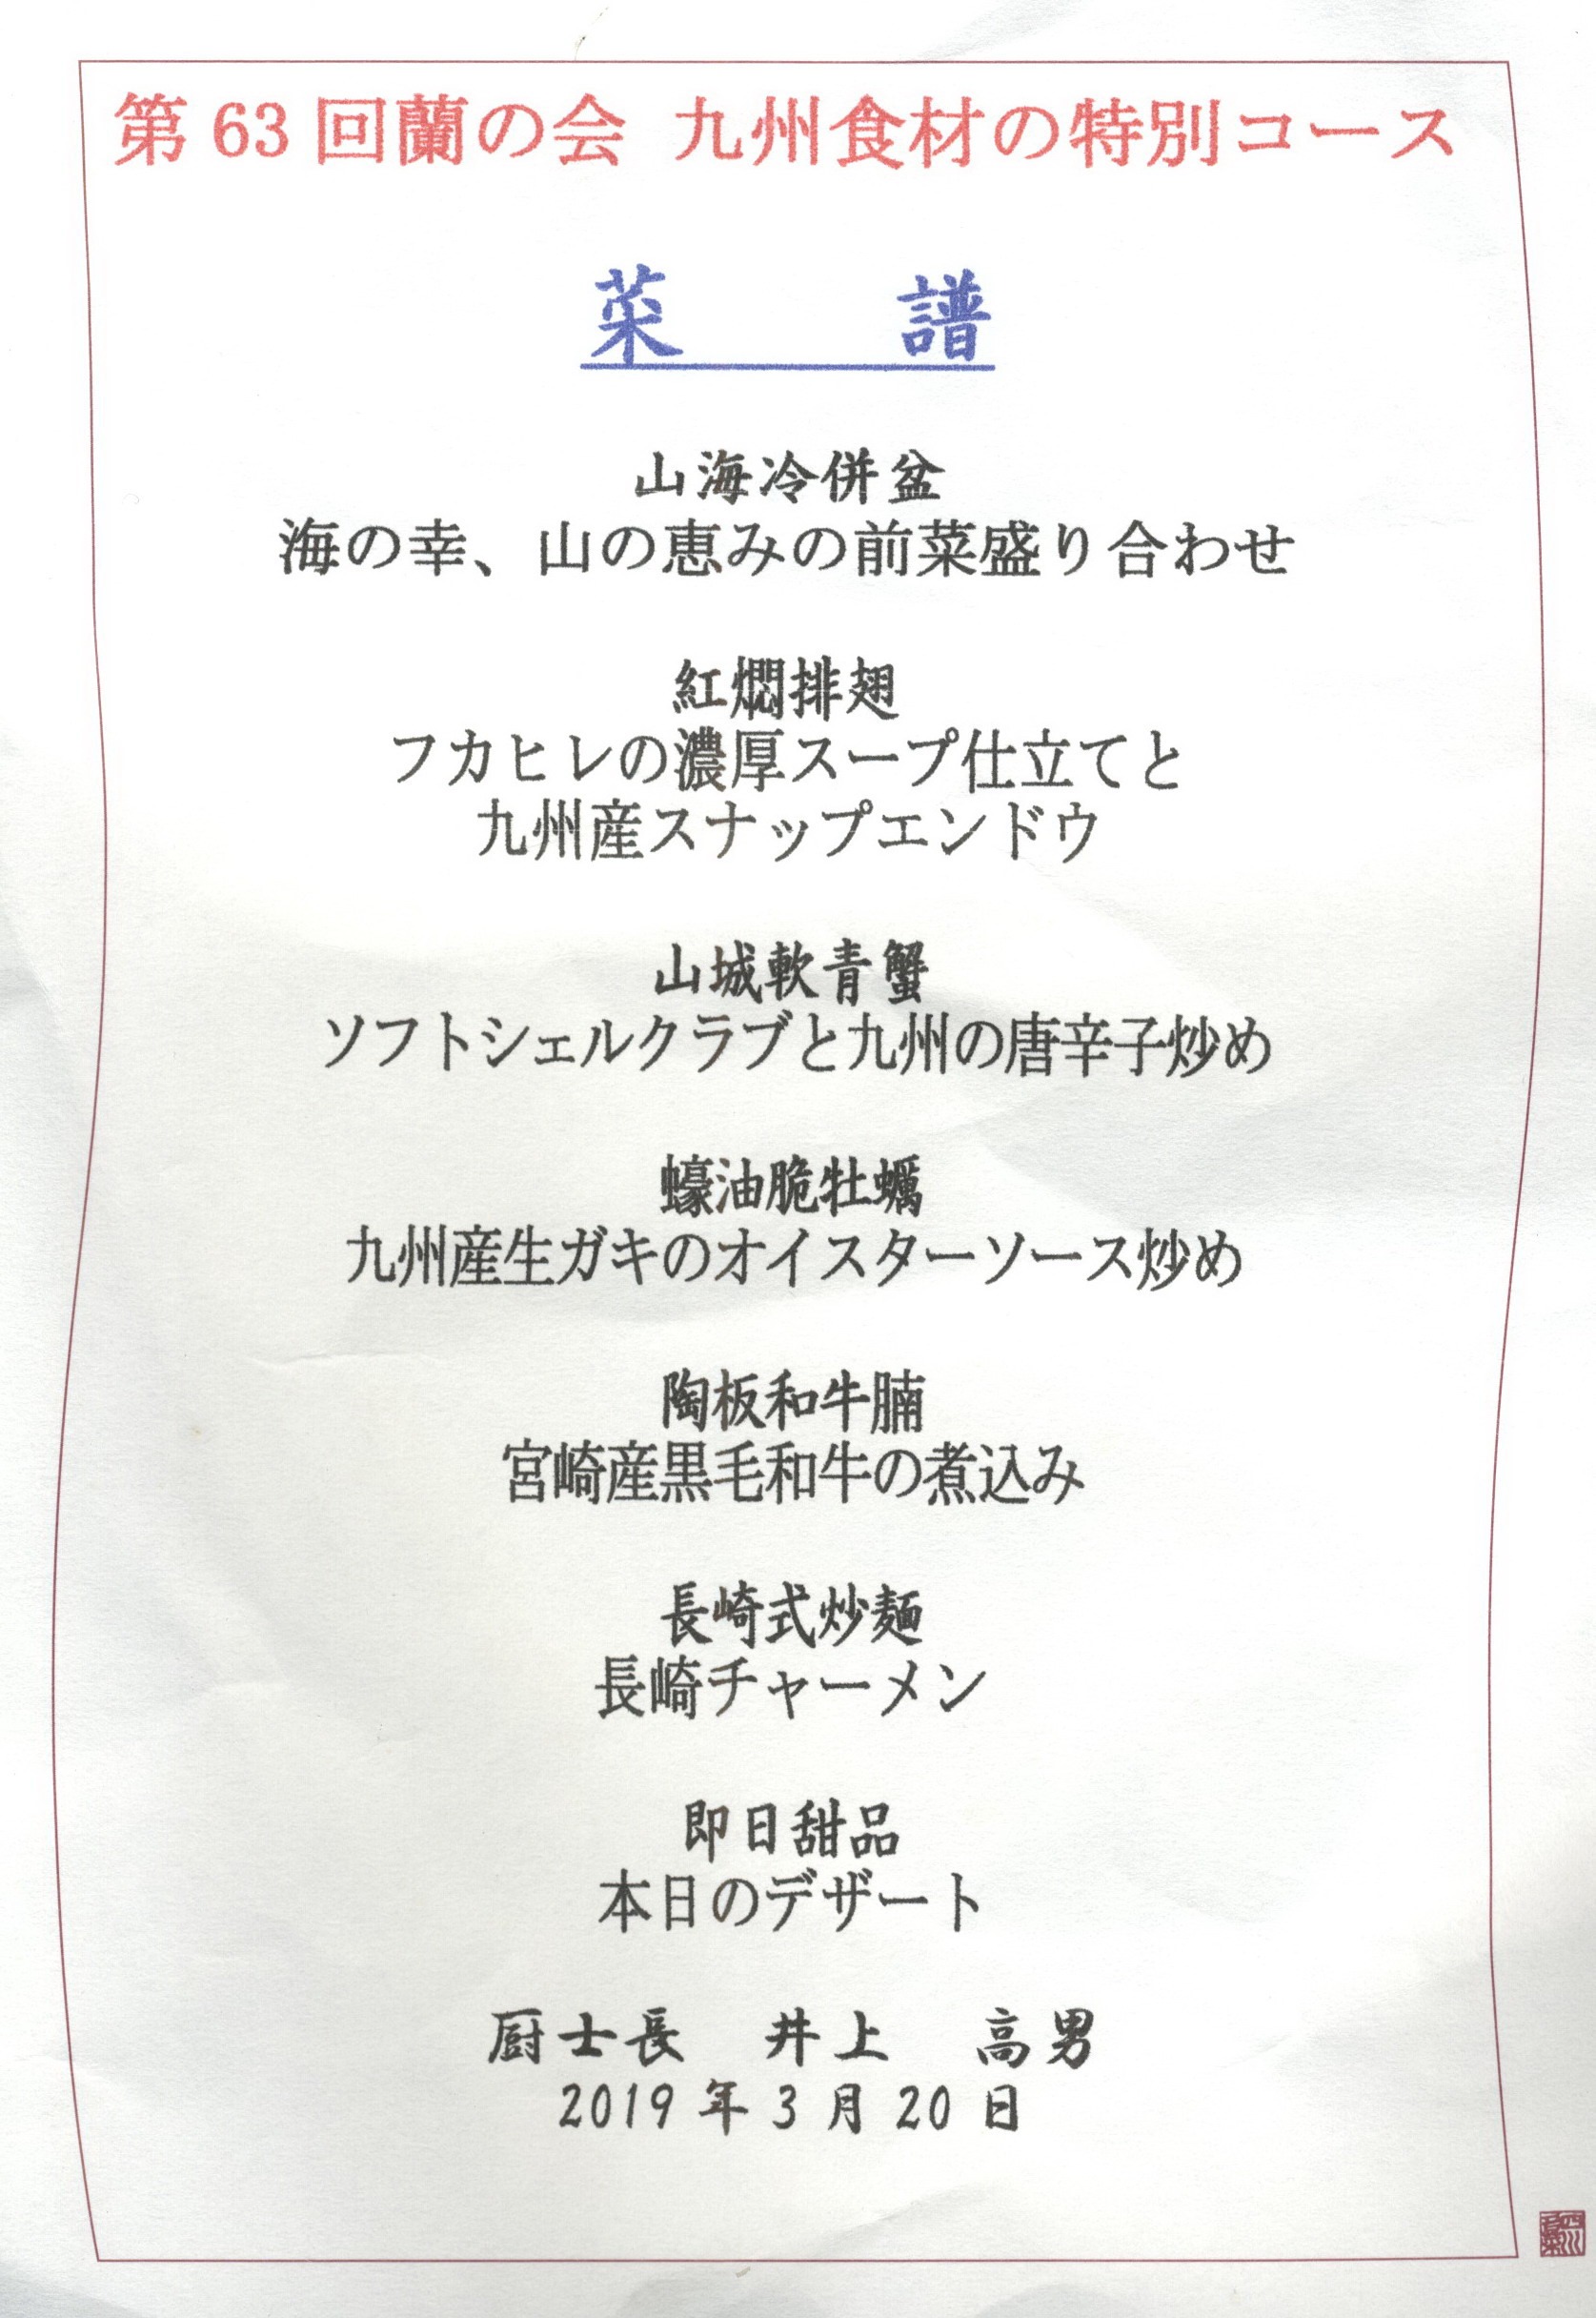 第63回蘭の会 九州食材の特別コース
菜 譜
山海冷併盆
海の幸、山の恵みの前菜盛り合わせ
紅燜排翅
フカヒレの濃厚スープ仕立てと
九州産スナップエンドウ
山城軟青蟹
ソフトシェルクラブと九州の唐辛子炒め
蠔油脆牡蠣
九州産生ガキのオイスターソース炒め
陶板和牛腩
宮崎産黒毛和牛の煮込み
長崎式炒麺
長崎チャーメン
即日甜品
本日のデザート
厨士長 井上 高男
2019年3月20日